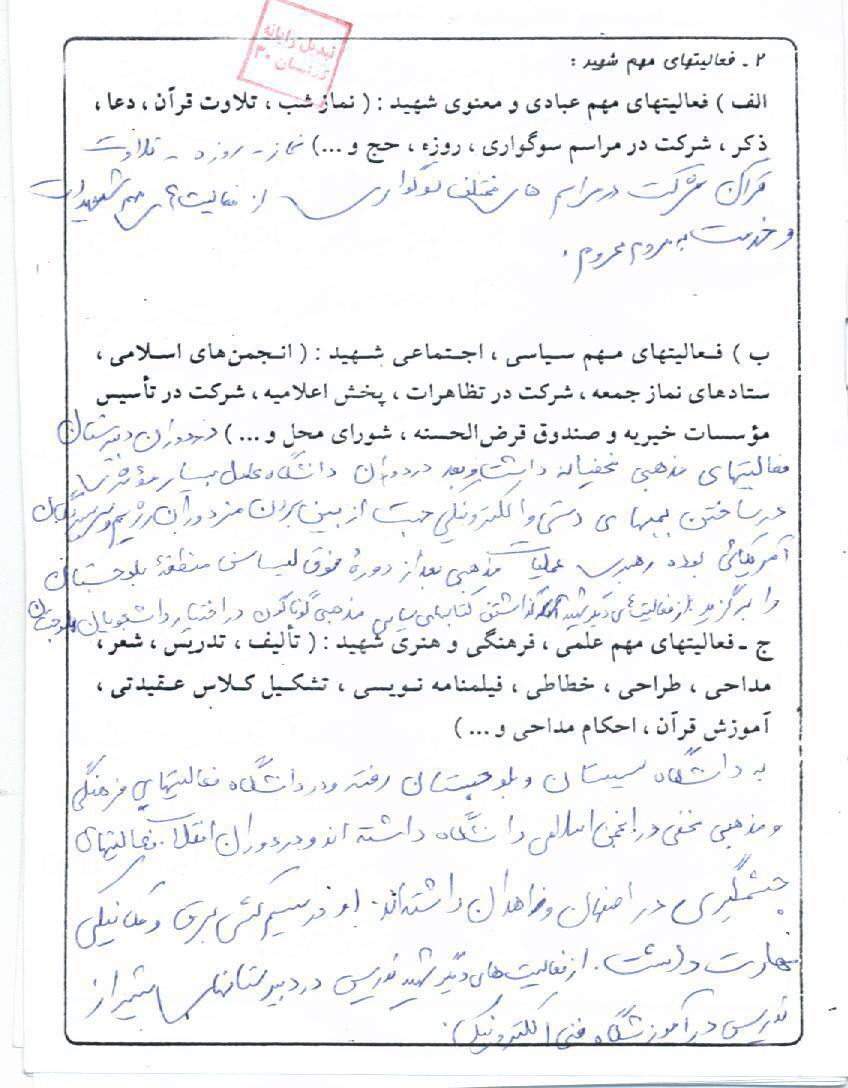 تبدیل رایانه
کردستان ۳۰
۲ ـ فعالیتهای مهم شهید :
الف ) فعالیتهای مهم عبادی و معنوی شهید : ( نماز شب ، تلاوت قرآن ، دعا ،
ذکر ، شرکت در مراسم سوگواری ، روزه ، حج و ...) نماز ـ روزه ـ تلاوت
قرآن شرکت در مراسم های مختلف سوگواری از فعالیت های مهم شهید است
و خدمت به مردم محروم .
ب ) فعالیتهای مهم سیاسی ، اجتماعی شهید : ( انجمن‌های اسلامی ،
ستادهای نماز جمعه ، شرکت در تظاهرات ، پخش اعلامیه ، شرکت در تأسیس
مؤسسات خیریه و صندوق قرض‌الحسنه ، شورای محل و ... ) در دوران دبیرستان
فعالیتهای مذهبی مخفیانه داشت و بعد در دوران دانشگاه عامل بسیار مؤثری
در ساختن بمبهای دستی و الکترونیکی جهت از بین بردن مزدوران رژیم و
آمریکائی بوده رهبری عملیات مذهبی بعد از دورهٔ فوق لیسانس منطقهٔ بلوچستان
را برگزید از فعالیت های دیگر شهید گذاشتن کتابهای سیاسی مذهبی گوناگون در اختیار دانشجویان بلوچستان
ج ـ فعالیتهای مهم علمی ، فرهنگی و هنری شهید : ( تألیف ، تدریس ، شعر ،
مداحی ، طراحی ، خطاطی ، فیلمنامه نویسی ، تشکیل کلاس عقیدتی ،
آموزش قرآن ، احکام مداحی و ... )
به دانشگاه سیستان و بلوچستان رفته و در دانشگاه فعالیتهای فرهنگی
و مذهبی مخفی در انجمن اسلامی دانشگاه داشته اند و در دوران انقلاب فعالیتهای
چشمگیری در اصفهان و زاهدان داشته‌اند. او در سیم کشی برق و مکانیکی
مهارت داشت . از فعالیت های دیگر شهید تدریس در دبیرستانهای شیراز
تدریس در آموزشگاه فنی الکترونیک .